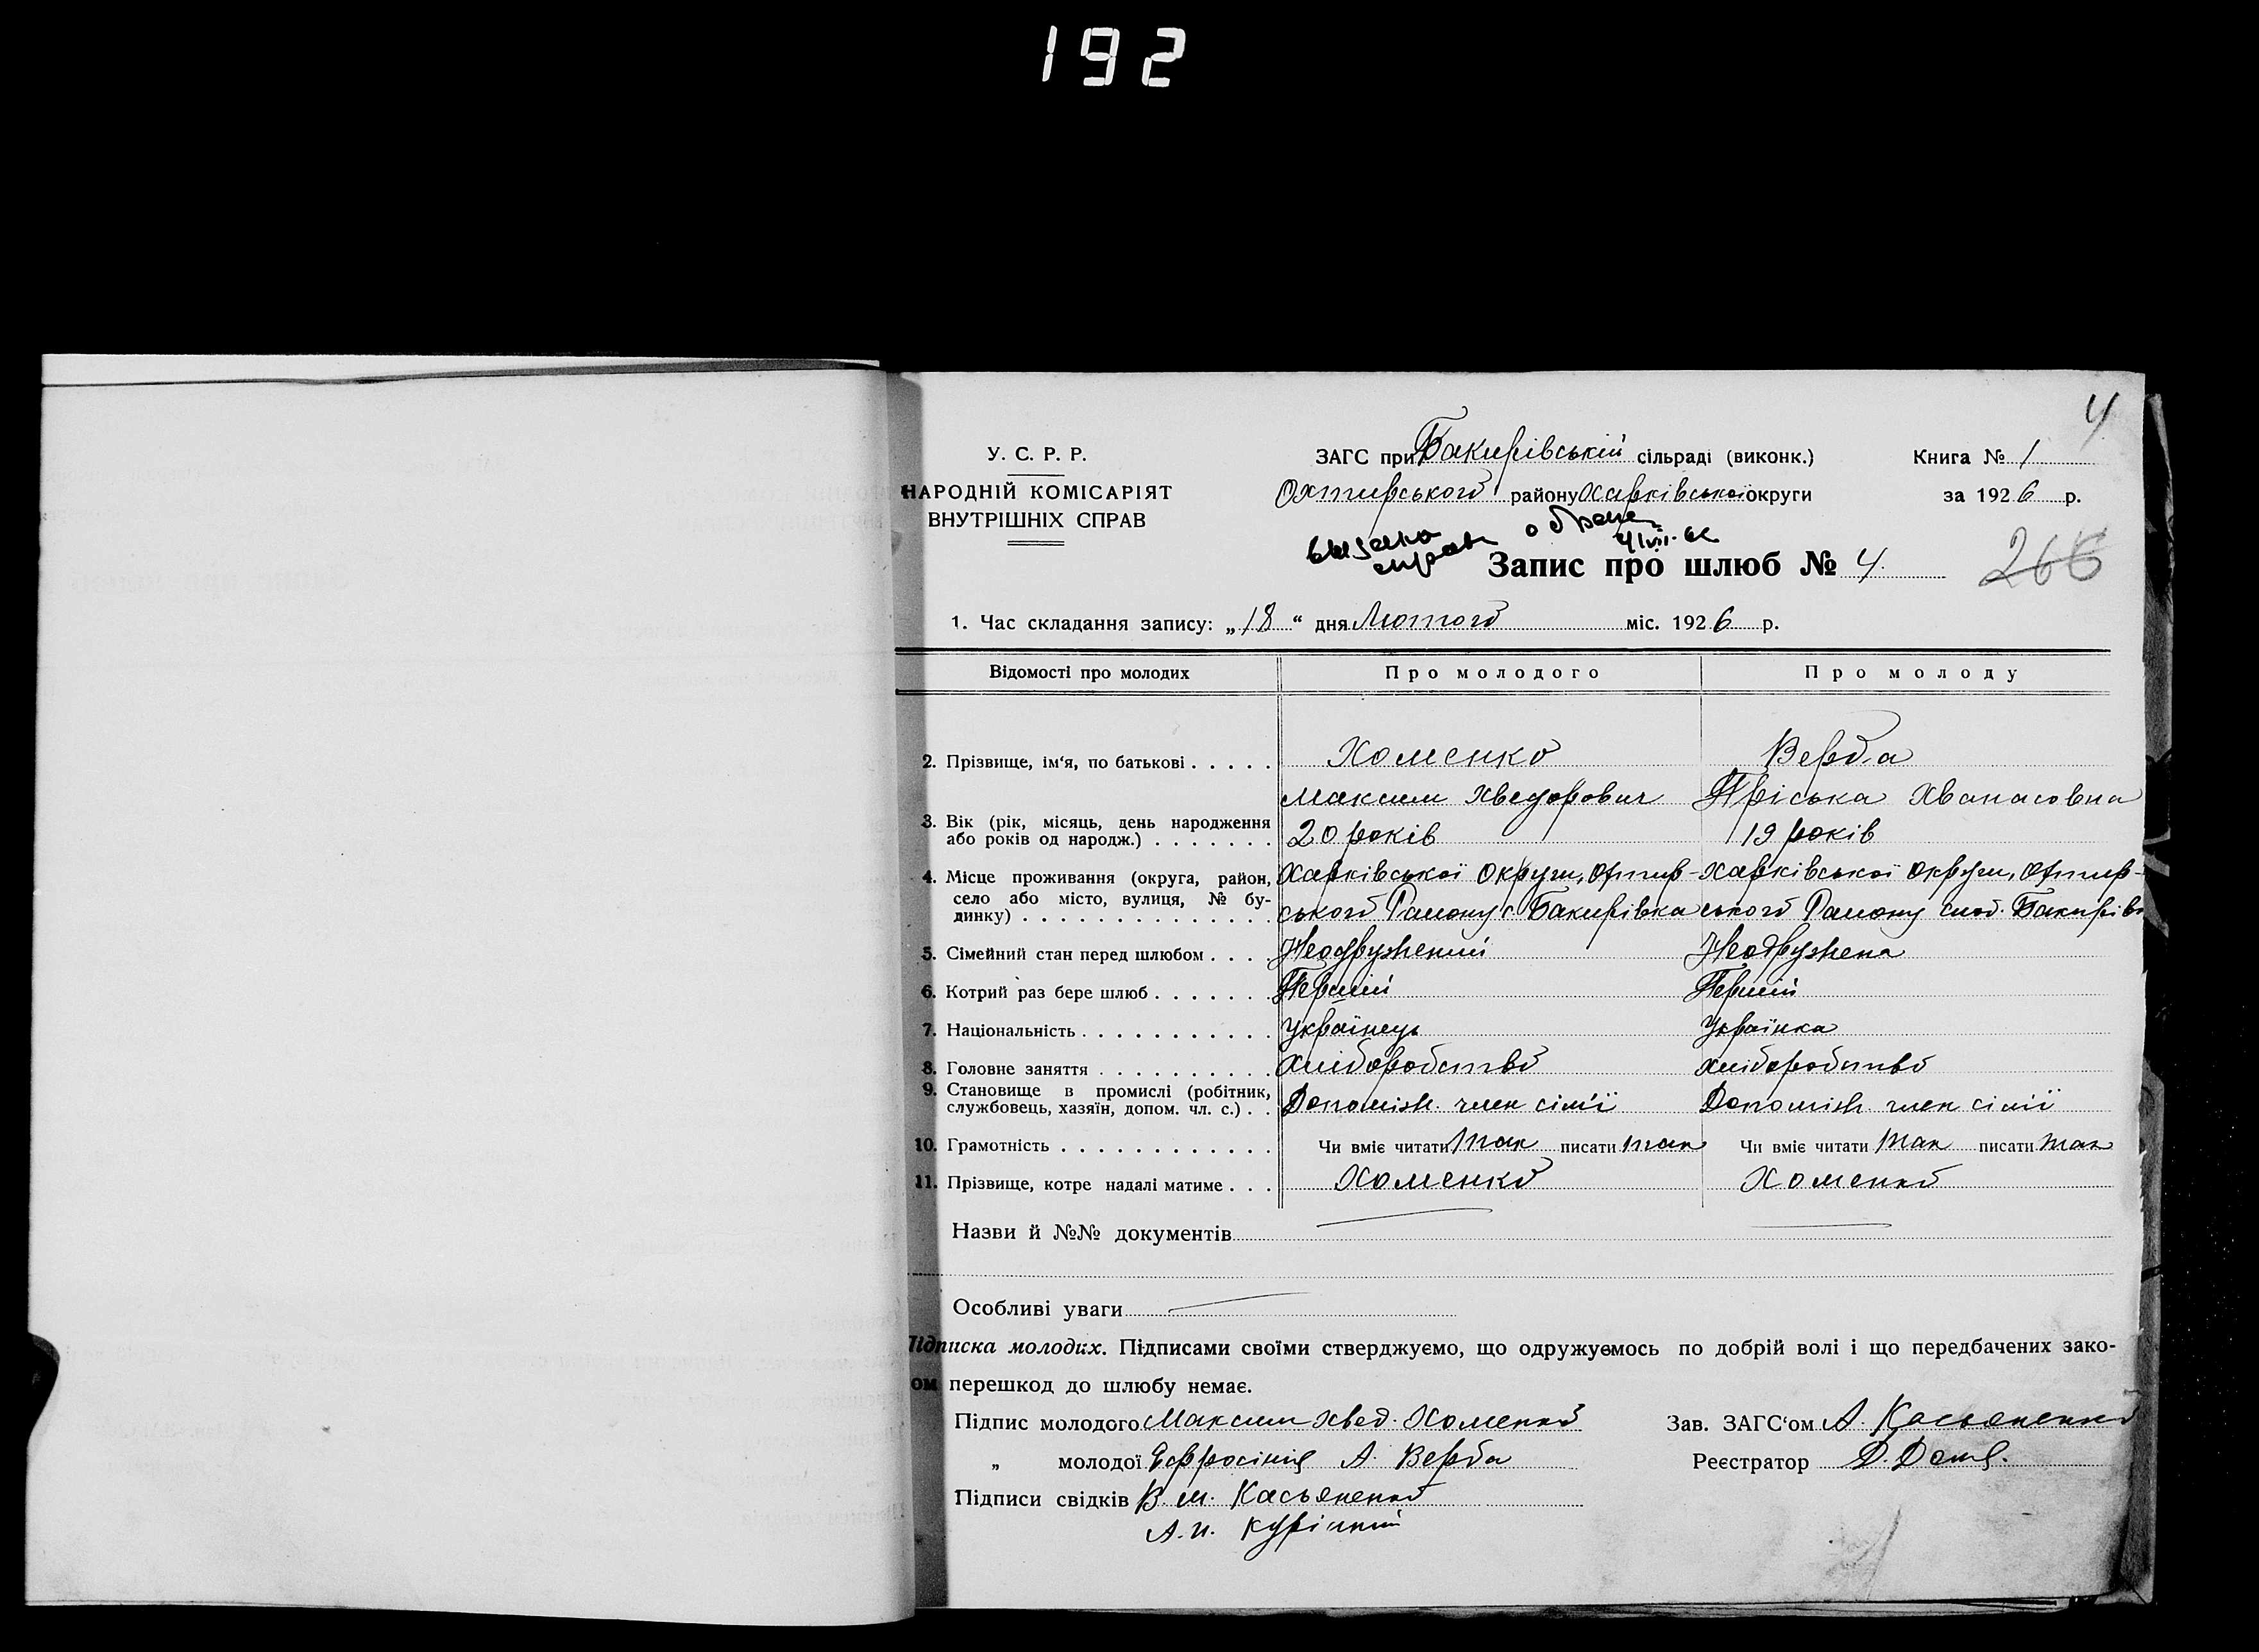 192
4
У. С. Р. Р.
НАРОДНІЙ КОМІСАРІЯТ
ВНУТРІШНІХ СПРАВ
ЗАГС при Бакирівській сільраді (виконк.)
Охтирського району Харківської округи
Книга № 1
за 1926 р.
Запис про шлюб № 4.
266
1. Час складання запису: „18“ дня Лютого міс. 1926 р.
Відомості про молодих Про молодого Про молоду
2. Прізвище, ім'я, по батькові . . . . . Хоменко Верба
Максим Хведорович Пріська Хванасовна
3. Вік (рік, місяць, день народження
або років од народж.) . . . . . . . 20 років 19 років
4. Місце проживання (округа, район, Харківської Округи, Охтир- Харківської Округи, Охтир-
село або місто, вулиця, № бу-
динку) . . . . . . . . . . . . . . ського Району с Бакирівка ського Району слоб. Бакирівк
5. Сімейний стан перед шлюбом . . . . Неодружений Неодружена
6. Котрий раз бере шлюб . . . . . . . Перший Перший
7. Національність . . . . . . . . . . . Українець Українка
8. Головне заняття . . . . . . . . . . Хліборобство хліборобство
9. Становище в промислі (робітник,
службовець, хазяїн, допом. чл. с.) . . Допоміж. член сім'ї Допоміж. член сімії
10. Грамотність . . . . . . . . . . . . Чи вміє читати так писати так Чи вміє читати так писати так
11. Прізвище, котре надалі матиме . . . Хоменко Хоменко
Назви й №№ документів
Особливі уваги
Підписка молодих. Підписами своїми стверджуємо, що одружуємось по добрій волі і що передбачених зако-
ом перешкод до шлюбу немає.
Підпис молодого Максим Хвед. Хоменко Зав. ЗАГС'ом А. Касьяненко
„ молодої Єфросінія А. Верба Реєстратор Д.
Підписи свідків В. М. Касьяненко
А. И. Курінний